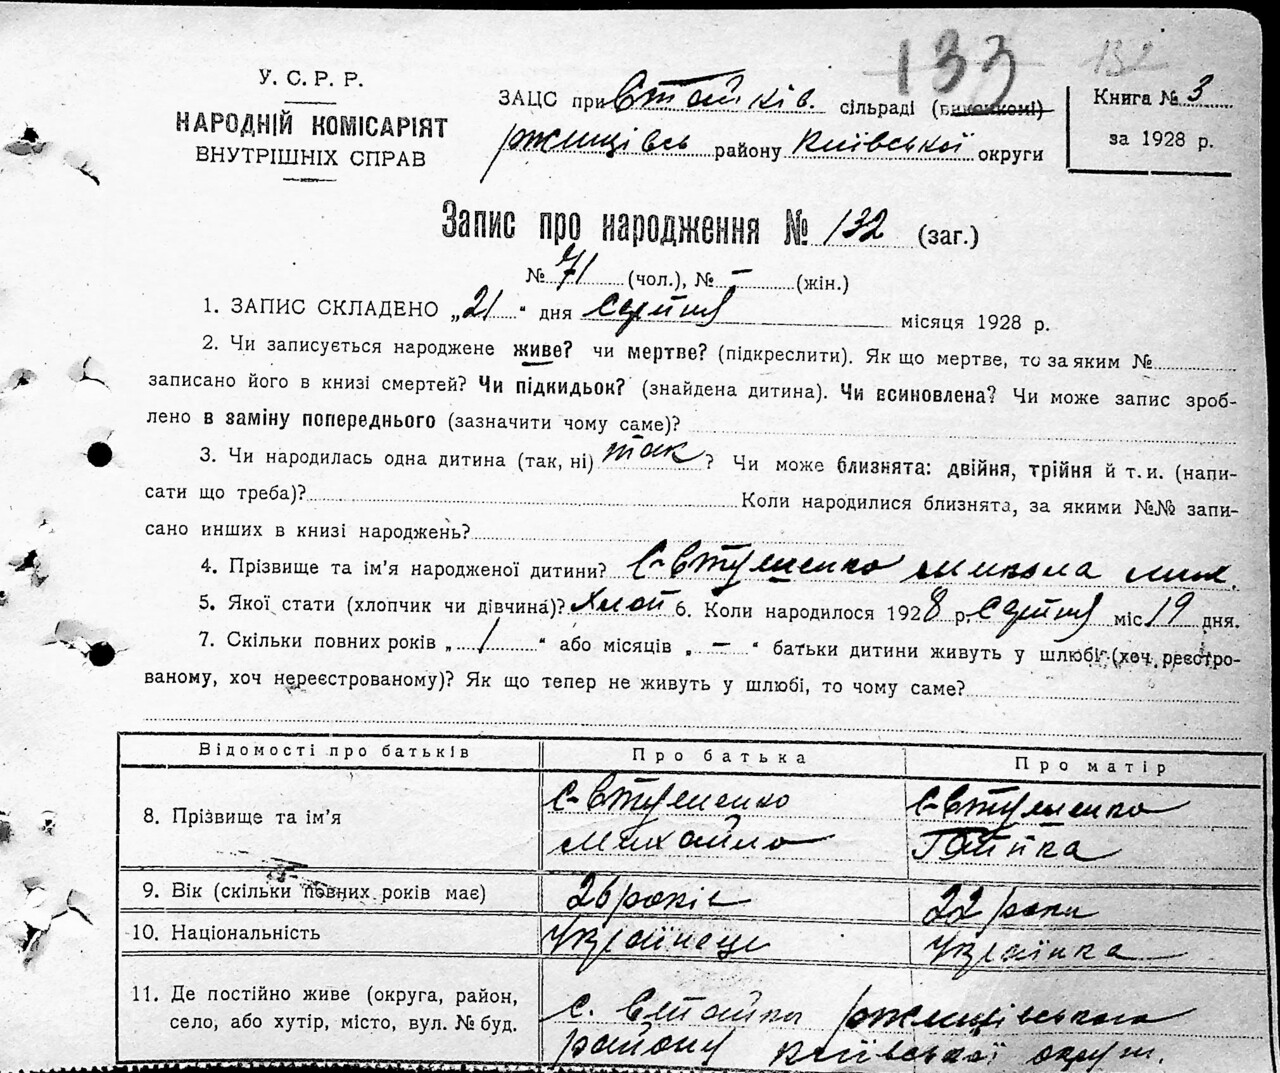 133 132
У.С.Р.Р.
НАРОДНІЙ КОМІСАРІЯТ
ВНУТРІШНІХ СПРАВ
ЗАЦС при Стайків. сільраді (виконкомі)
Ржищівсь району Київської округи
Книга № 3
за 1928 р.
Запис про народження № 132 (заг.)
№ 71 (чол.), № – (жін.)
1. ЗАПИС СКЛАДЕНО „21“ дня Серпня місяця 1928 р.
2. Чи записується народжене живе? чи мертве? (підкреслити). Як що мертве, то за яким №
записано його в книзі смертей? Чи підкидьок? (знайдена дитина). Чи всиновлена? Чи може запис зроб-
лено в заміну попереднього (зазначити чому саме)?
3. Чи народилась одна дитина (так, ні) так? Чи може близнята: двійня, трійня й т. и. (напи-
сати що треба)? Коли народилися близнята, за якими №№ запи-
сано инших в книзі народжень?
4. Прізвище та ім’я народженої дитини? Євтушенко Микола Мих.
5. Якої стати (хлопчик чи дівчина)? Хлоп 6. Коли народилося 1928 р. Серпня міс. 19 дня.
7. Скільки повних років „1“ або місяців „–“ батьки дитини живуть у шлюбі (хоч реєстро-
ваному, хоч нереєстрованому)? Як що тепер не живуть у шлюбі, то чому саме?
Відомості про батьків Про батька Про матір
8. Прізвище та ім’я Євтушенко Михайло Євтушенко
9. Вік (скільки повних років має) 26 років 22 роки
10. Національність Українець Українка
11. Де постійно живе (округа, район,
село, або хутір, місто, вул. № буд.
с. Стайки Ржищівського
району Київської округи.